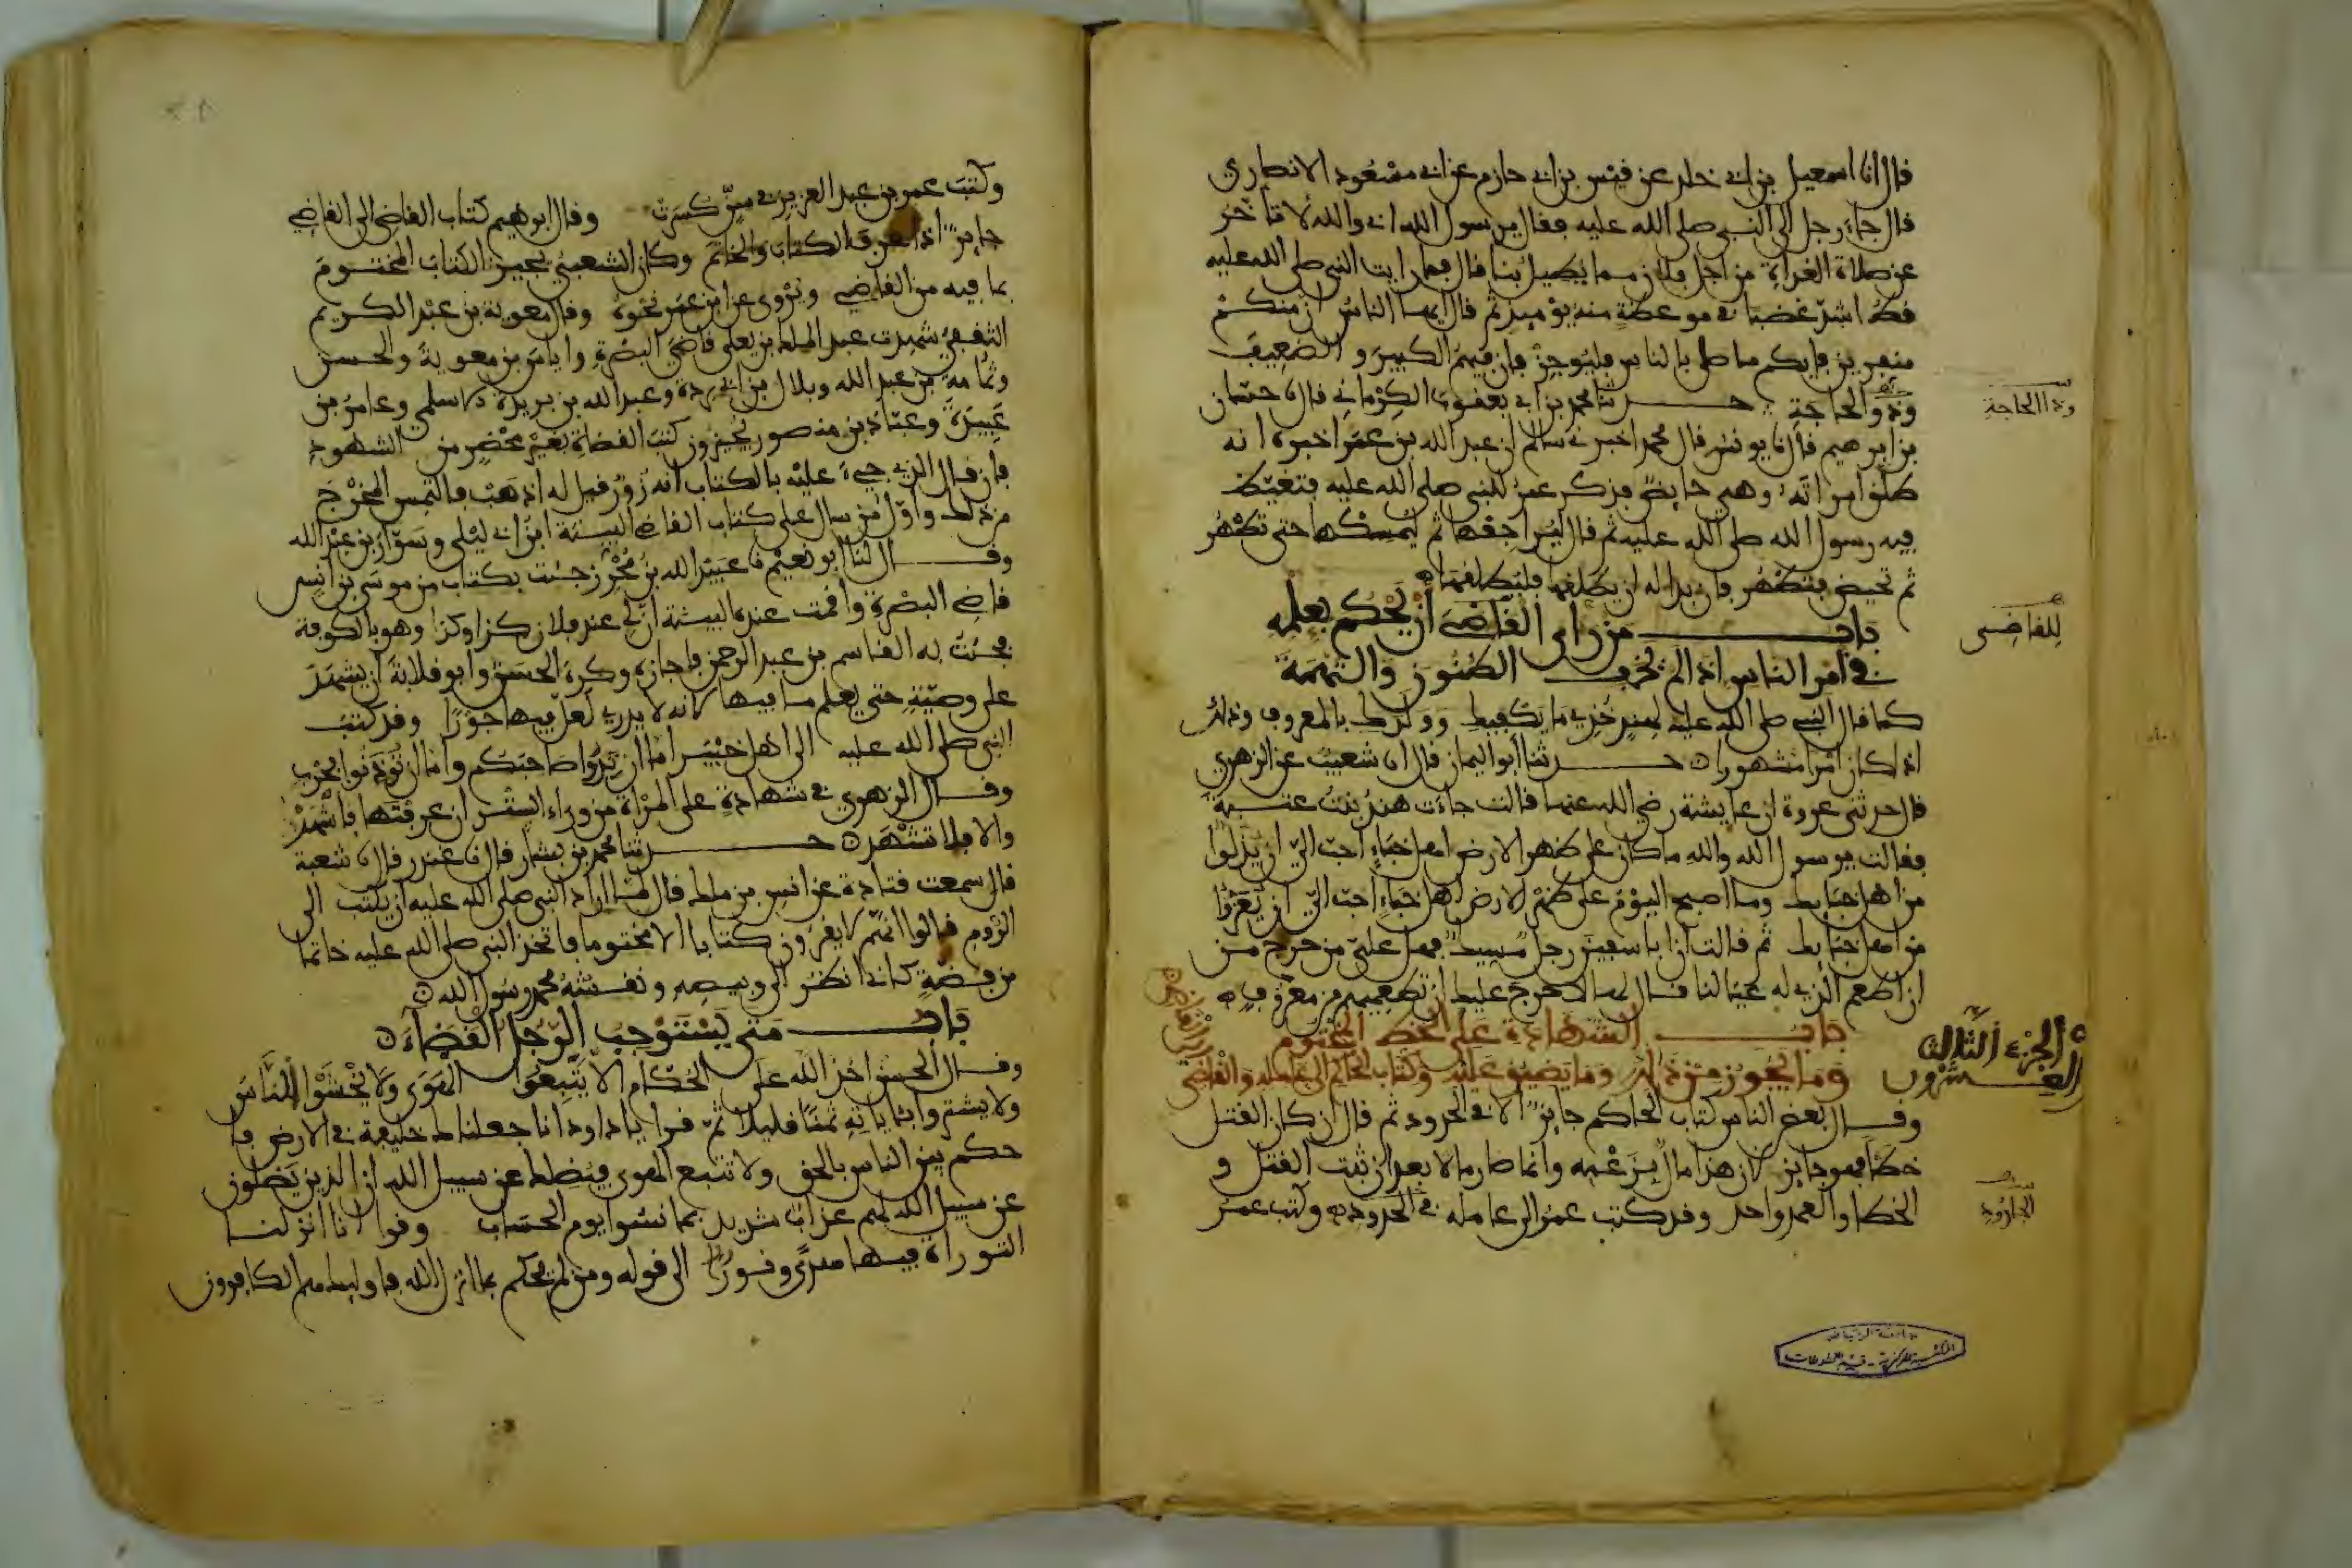 قال انا اسمعيل بن ابي خلد عن قيس بن ابي حازم عن ابي مسعود الانصاري
قال جاء رجل الى النبي صلى الله عليه فقال يرسول الله اني والله لاتاخر
عن صلاة الغداة من اجل فلان مما يطيل بنا قال فما رايت النبي صلى الله عليه
قط اشد غضبا في موعظة منه يومىذ ثم قال ايها الناس ان منكم
منفرين فايكم ما صلى بالناس فليوجز فان فيهم الكبير والضعيف
وذو الحاجة حدثنا محمد بن ابي يعقوب الكرماني قال نا حسان
وذا الحاجة
بن ابرهيم قال نا يونس قال محمد اخبرني سالم ان عبد الله بن عمر اخبره انه
طلق امراته وهي حايض فذكر عمر للنبي صلى الله عليه فتغيظ
فيه رسول الله صلى الله عليه ثم قال ليراجعها ثم ليمسكها حتى تطهر
ثم تحيض فتطهر فان بدا له ان يطلقها فليطلقها
باب من راى القاضي ان يحكم بعلمه
للقاضي
في امر الناس اذا لم يخف الظنون والتهمة
كما قال النبي صلى الله عليه لهند خذي ما يكفيك وولدك بالمعروف وذلك
اذا كان امرا مشهورا حدثنا أبو اليمان قال انا شعيب عن الزهري
قال حدثني عروة ان عايشة رضي الله عنها قالت جاءت هند بنت عتبة
فقالت يرسول الله والله ما كان على ظهر الارض اهل خباء احب الي ان يذلوا
من اهل خبايك وما اصبح اليوم على ظهر الارض اهل خباء احب الي ان يعزوا
من اهل خبايك ثم قالت ان ابا سفين رجل مسيك فهل علي من حرج من
ان اطعم الذي له عيالنا قال لها لا حرج عليك ان تطعميهم من معروف
باب الشهادة على الخط المختوم
الجزء الثالث
والعشرون
وما يجوز من ذلك وما يضيق عليه وكتاب الحاكم الى عامله والقاضي
وقال بعض الناس كتاب الحاكم جايز الا في الحدود ثم قال ان كان القتل
خطأ فهو جايز لان هذا مال بزعمه وانما صار مالا بعد ان ثبت القتل و
الخطا والعمد واحد وقد كتب عمر الى عامله في الحدود وكتب عمر
الجارود
وكتب عمر بن عبد العزيز في سن كسرت وقال ابرهيم كتاب القاضي الى القاضي
جايز اذا عرف الكتاب والخاتم وكان الشعبي يجيز الكتاب المختوم
بما فيه من القاضي ويروى عن ابن عمر نحوه وقال معوية بن عبد الكريم
الثقفي شهدت عبد الملك بن يعلى قاضي البصرة واياس بن معوية والحسن
وثمامة بن عبد الله وبلال بن ابي بردة وعبد الله بن بريدة الاسلمي وعامر بن
عبيدة وعباد بن منصور يجيزون كتب القضاة بغير محضر من الشهود
فان قال الذي جيء عليه بالكتاب انه زور قيل له اذهب فالتمس المخرج
من ذلك واول من سال على كتاب القاضي البينة ابن ابي ليلى وسوار بن عبد الله
وقال لنا ابو نعيم نا عبيد الله بن محرز جئت بكتاب من موسى بن انس
قاضي البصرة واقمت عنده البينة ان لي عند فلان كذا وكذا وهو بالكوفة
فجئت به القاسم بن عبد الرحمن فاجازه وكره الحسن وابو قلابة ان يشهد
على وصية حتى يعلم ما فيها لانه لا يدري لعل فيها جورا وقد كتب
النبي صلى الله عليه الى اهل خيبر اما ان يدوا صاحبكم واما ان تؤذنوا بحرب
وقال الزهري في شهادة على المرأة من وراء الستر ان عرفتها فاشهد
والا فلا تشهد حدثنا محمد بن بشار قال نا غندر قال نا شعبة
قال سمعت قتادة عن انس بن ملك قال لما اراد النبي صلى الله عليه ان يكتب الى
الروم قالوا انهم لا يقرءون كتابا الا مختوما فاتخذ النبي صلى الله عليه خاتما
من فضة كاني انظر الى وبيصه ونقشه محمد رسول الله
باب متى يستوجب الرجل القضاء
وقال الحسن اخذ الله على الحكام الا يتبعوا الهوى ولا يخشوا الناس
ولا يشتروا باياته ثمنا قليلا ثم قرا ياداود انا جعلناك خليفة في الارض فا
حكم بين الناس بالحق ولا تتبع الهوى فيضلك عن سبيل الله ان الذين يضلون
عن سبيل الله لهم عذاب شديد بما نسوا يوم الحساب وقرا انا انزلنا
التوراة فيها هدى ونور الى قوله ومن لم يحكم بما انزل الله فاوليك هم الكافرون